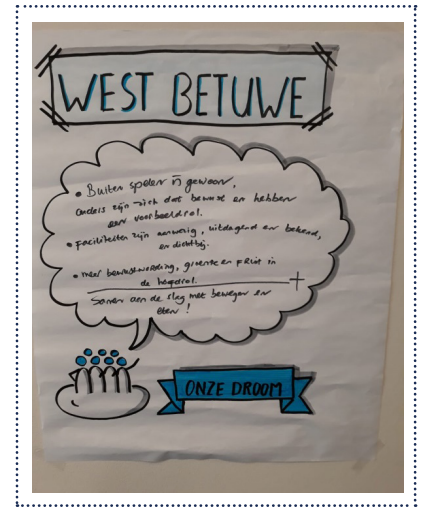 WEST BETUWE
• Buiten spelen is gewoon,
ouders zijn zich dat bewust en hebben
een voorbeeldrol.
• faciliteiten zijn aanwezig, uitdagend en bekend,
en dichtbij.
• meer bewustwording, groente en fruit in
de hoofdrol.
+
Samen aan de slag met bewegen en
eten!
ONZE DROOM